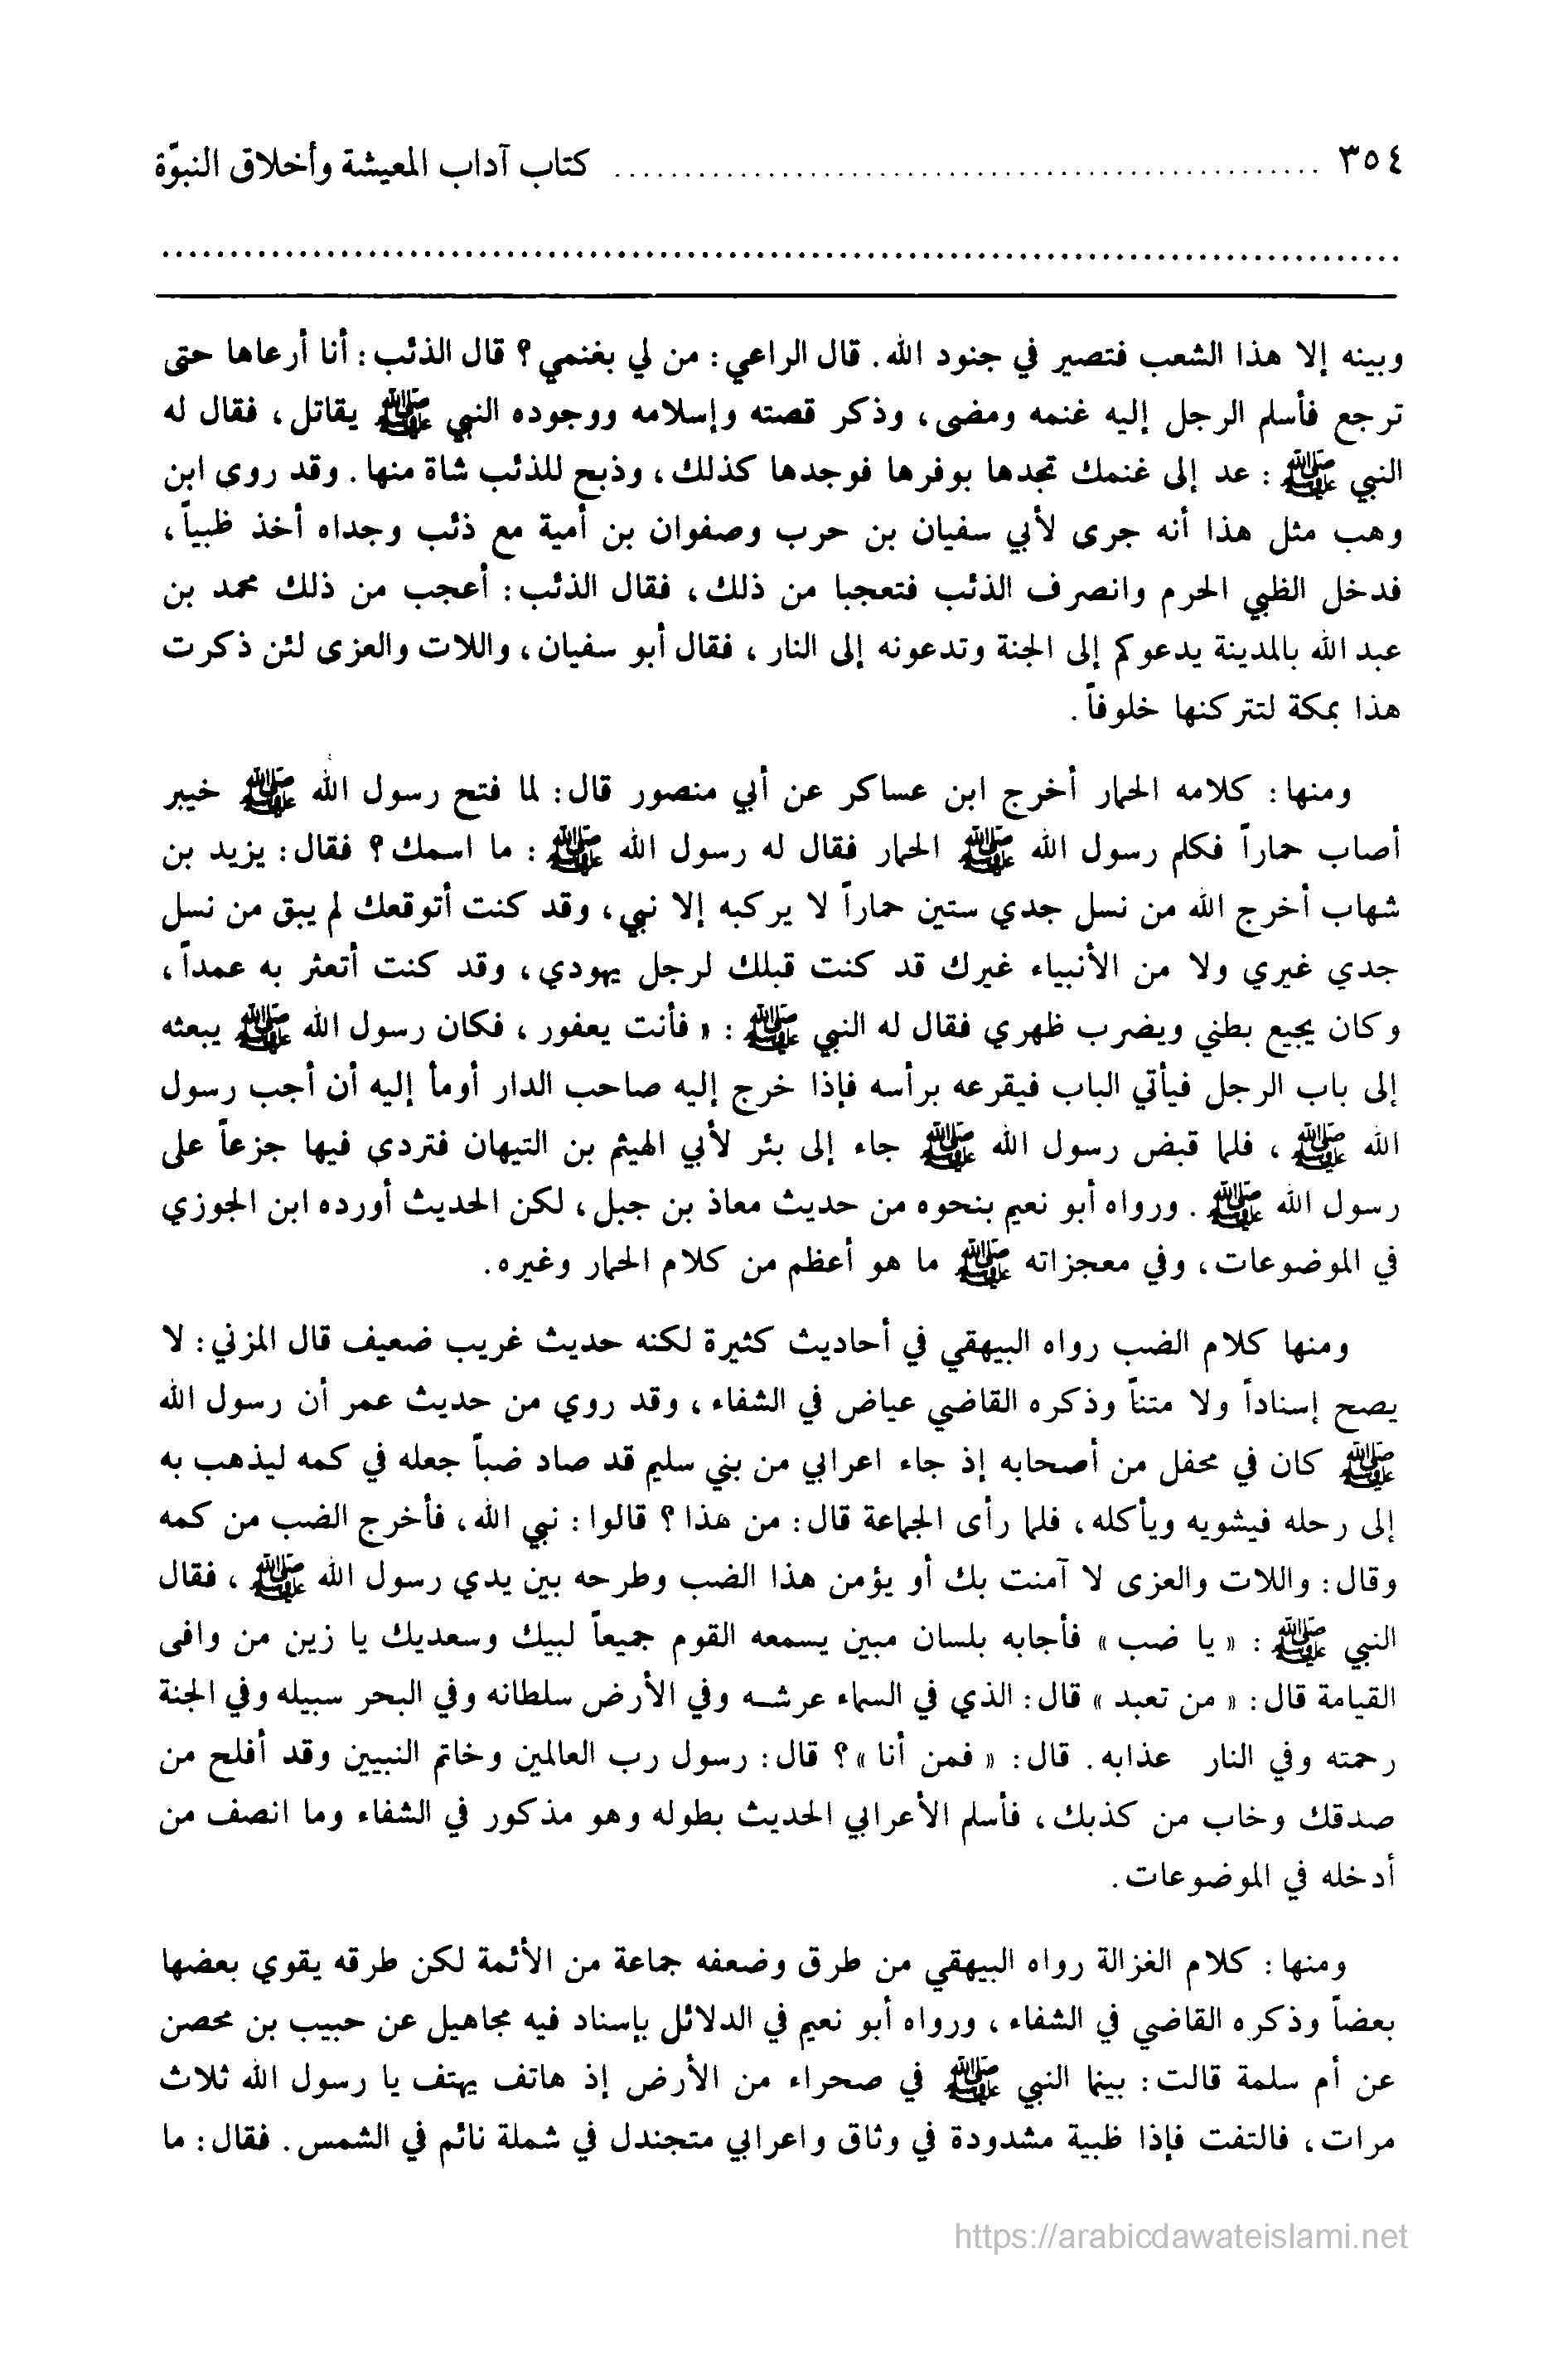 ٣٥٤ ........................................................ كتاب آداب المعيشة وأخلاق النبوّة
................................................................................
وبينه إلا هذا الشعب فتصير في جنود الله. قال الراعي: من لي بغنمي؟ قال الذئب: أنا أرعاها حتى
ترجع فأسلم الرجل إليه غنمه ومضى، وذكر قصته وإسلامه ووجوده النبي ﷺ يقاتل، فقال له
النبي ﷺ: عد إلى غنمك تجدها بوفرها فوجدها كذلك، وذبح للذئب شاة منها. وقد روى ابن
وهب مثل هذا أنه جرى لأبي سفيان بن حرب وصفوان بن أمية مع ذئب وجداه أخذ ظبياً،
فدخل الظبي الحرم وانصرف الذئب فتعجبا من ذلك، فقال الذئب: أعجب من ذلك محمد بن
عبد الله بالمدينة يدعوكم إلى الجنة وتدعونه إلى النار، فقال أبو سفيان، واللات والعزى لئن ذكرت
هذا بمكة لتتركنها خلوفاً.
ومنها: كلامه الحمار أخرج ابن عساكر عن أبي منصور قال: لما فتح رسول الله ﷺ خيبر
أصاب حماراً فكلم رسول الله ﷺ الحمار فقال له رسول الله ﷺ: ما اسمك؟ فقال: يزيد بن
شهاب أخرج الله من نسل جدي ستين حماراً لا يركبه إلا نبي، وقد كنت أتوقعك لم يبق من نسل
جدي غيري ولا من الأنبياء غيرك قد كنت قبلك لرجل يهودي، وقد كنت أتعثر به عمداً،
وكان يجيع بطني ويضرب ظهري فقال له النبي ﷺ: « فأنت يعفور، فكان رسول الله ﷺ يبعثه
إلى باب الرجل فيأتي الباب فيقرعه برأسه فإذا خرج إليه صاحب الدار أومأ إليه أن أجب رسول
الله ﷺ، فلما قبض رسول الله ﷺ جاء إلى بئر لأبي الهيثم بن التيهان فتردى فيها جزعاً على
رسول الله ﷺ. ورواه أبو نعيم بنحوه من حديث معاذ بن جبل، لكن الحديث أورده ابن الجوزي
في الموضوعات، وفي معجزاته ﷺ ما هو أعظم من كلام الحمار وغيره.
ومنها كلام الضب رواه البيهقي في أحاديث كثيرة لكنه حديث غريب ضعيف قال المزني: لا
يصح إسناداً ولا متناً وذكره القاضي عياض في الشفاء، وقد روي من حديث عمر أن رسول الله
ﷺ كان في محفل من أصحابه إذ جاء اعرابي من بني سليم قد صاد ضباً جعله في كمه ليذهب به
إلى رحله فيشويه ويأكله، فلما رأى الجماعة قال: من هذا؟ قالوا: نبي الله، فأخرج الضب من كمه
وقال: واللات والعزى لا آمنت بك أو يؤمن هذا الضب وطرحه بين يدي رسول الله ﷺ، فقال
النبي ﷺ: « يا ضب » فأجابه بلسان مبين يسمعه القوم جميعاً لبيك وسعديك يا زين من وافى
القيامة قال: « من تعبد » قال: الذي في السماء عرشـه وفي الأرض سلطانه وفي البحر سبيله وفي الجنة
رحمته وفي النار عذابه. قال: « فمن أنا »؟ قال: رسول رب العالمين وخاتم النبيين وقد أفلح من
صدقك وخاب من كذبك، فأسلم الأعرابي الحديث بطوله وهو مذكور في الشفاء وما انصف من
أدخله في الموضوعات.
ومنها: كلام الغزالة رواه البيهقي من طرق وضعفه جماعة من الأئمة لكن طرقه يقوي بعضها
بعضاً وذكره القاضي في الشفاء، ورواه أبو نعيم في الدلائل بإسناد فيه مجاهيل عن حبيب بن محصن
عن أم سلمة قالت: بينما النبي ﷺ في صحراء من الأرض إذ هاتف يهتف يا رسول الله ثلاث
مرات، فالتفت فإذا ظبية مشدودة في وثاق واعرابي متجندل في شملة نائم في الشمس. فقال: ما
https://arabicdawateislami.net